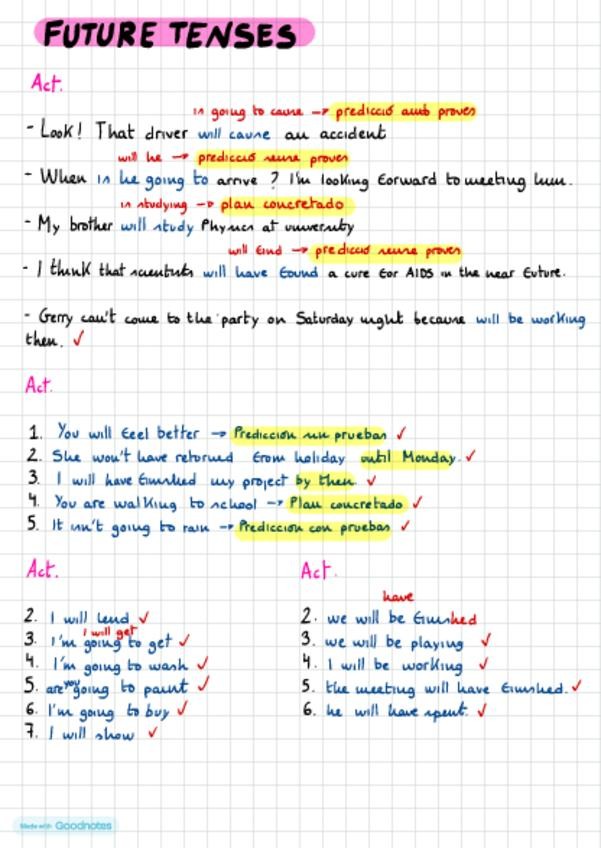 FUTURE TENSES
Act.
is going to cause → predicció amb proves
- Look! That driver will cause an accident
will he → predicció sense proves
- When is he going to arrive? I'm looking forward to meeting him.
is studying → plan concretado
- My brother will study Physics at university
will find → predicció sense proves
- I think that scientists will have found a cure for AIDS in the near future.
- Gerry can't come to the party on Saturday night because will be working
then. ✓
Act.
1. You will feel better → Predicción sin pruebas ✓
2. She won't have returned from holiday until Monday. ✓
3. I will have finished my project by then. ✓
4. You are walking to school → Plan concretado ✓
5. It isn't going to rain → Predicción con pruebas ✓
Act.
2. I will lend ✓
I will get
3. I'm going to get ✓
4. I'm going to wash ✓
5. are you going to paint ✓
6. I'm going to buy ✓
7. I will show ✓
Act.
have
2. we will be finished
3. we will be playing ✓
4. I will be working ✓
5. the meeting will have finished. ✓
6. he will have spent. ✓
Made with Goodnotes